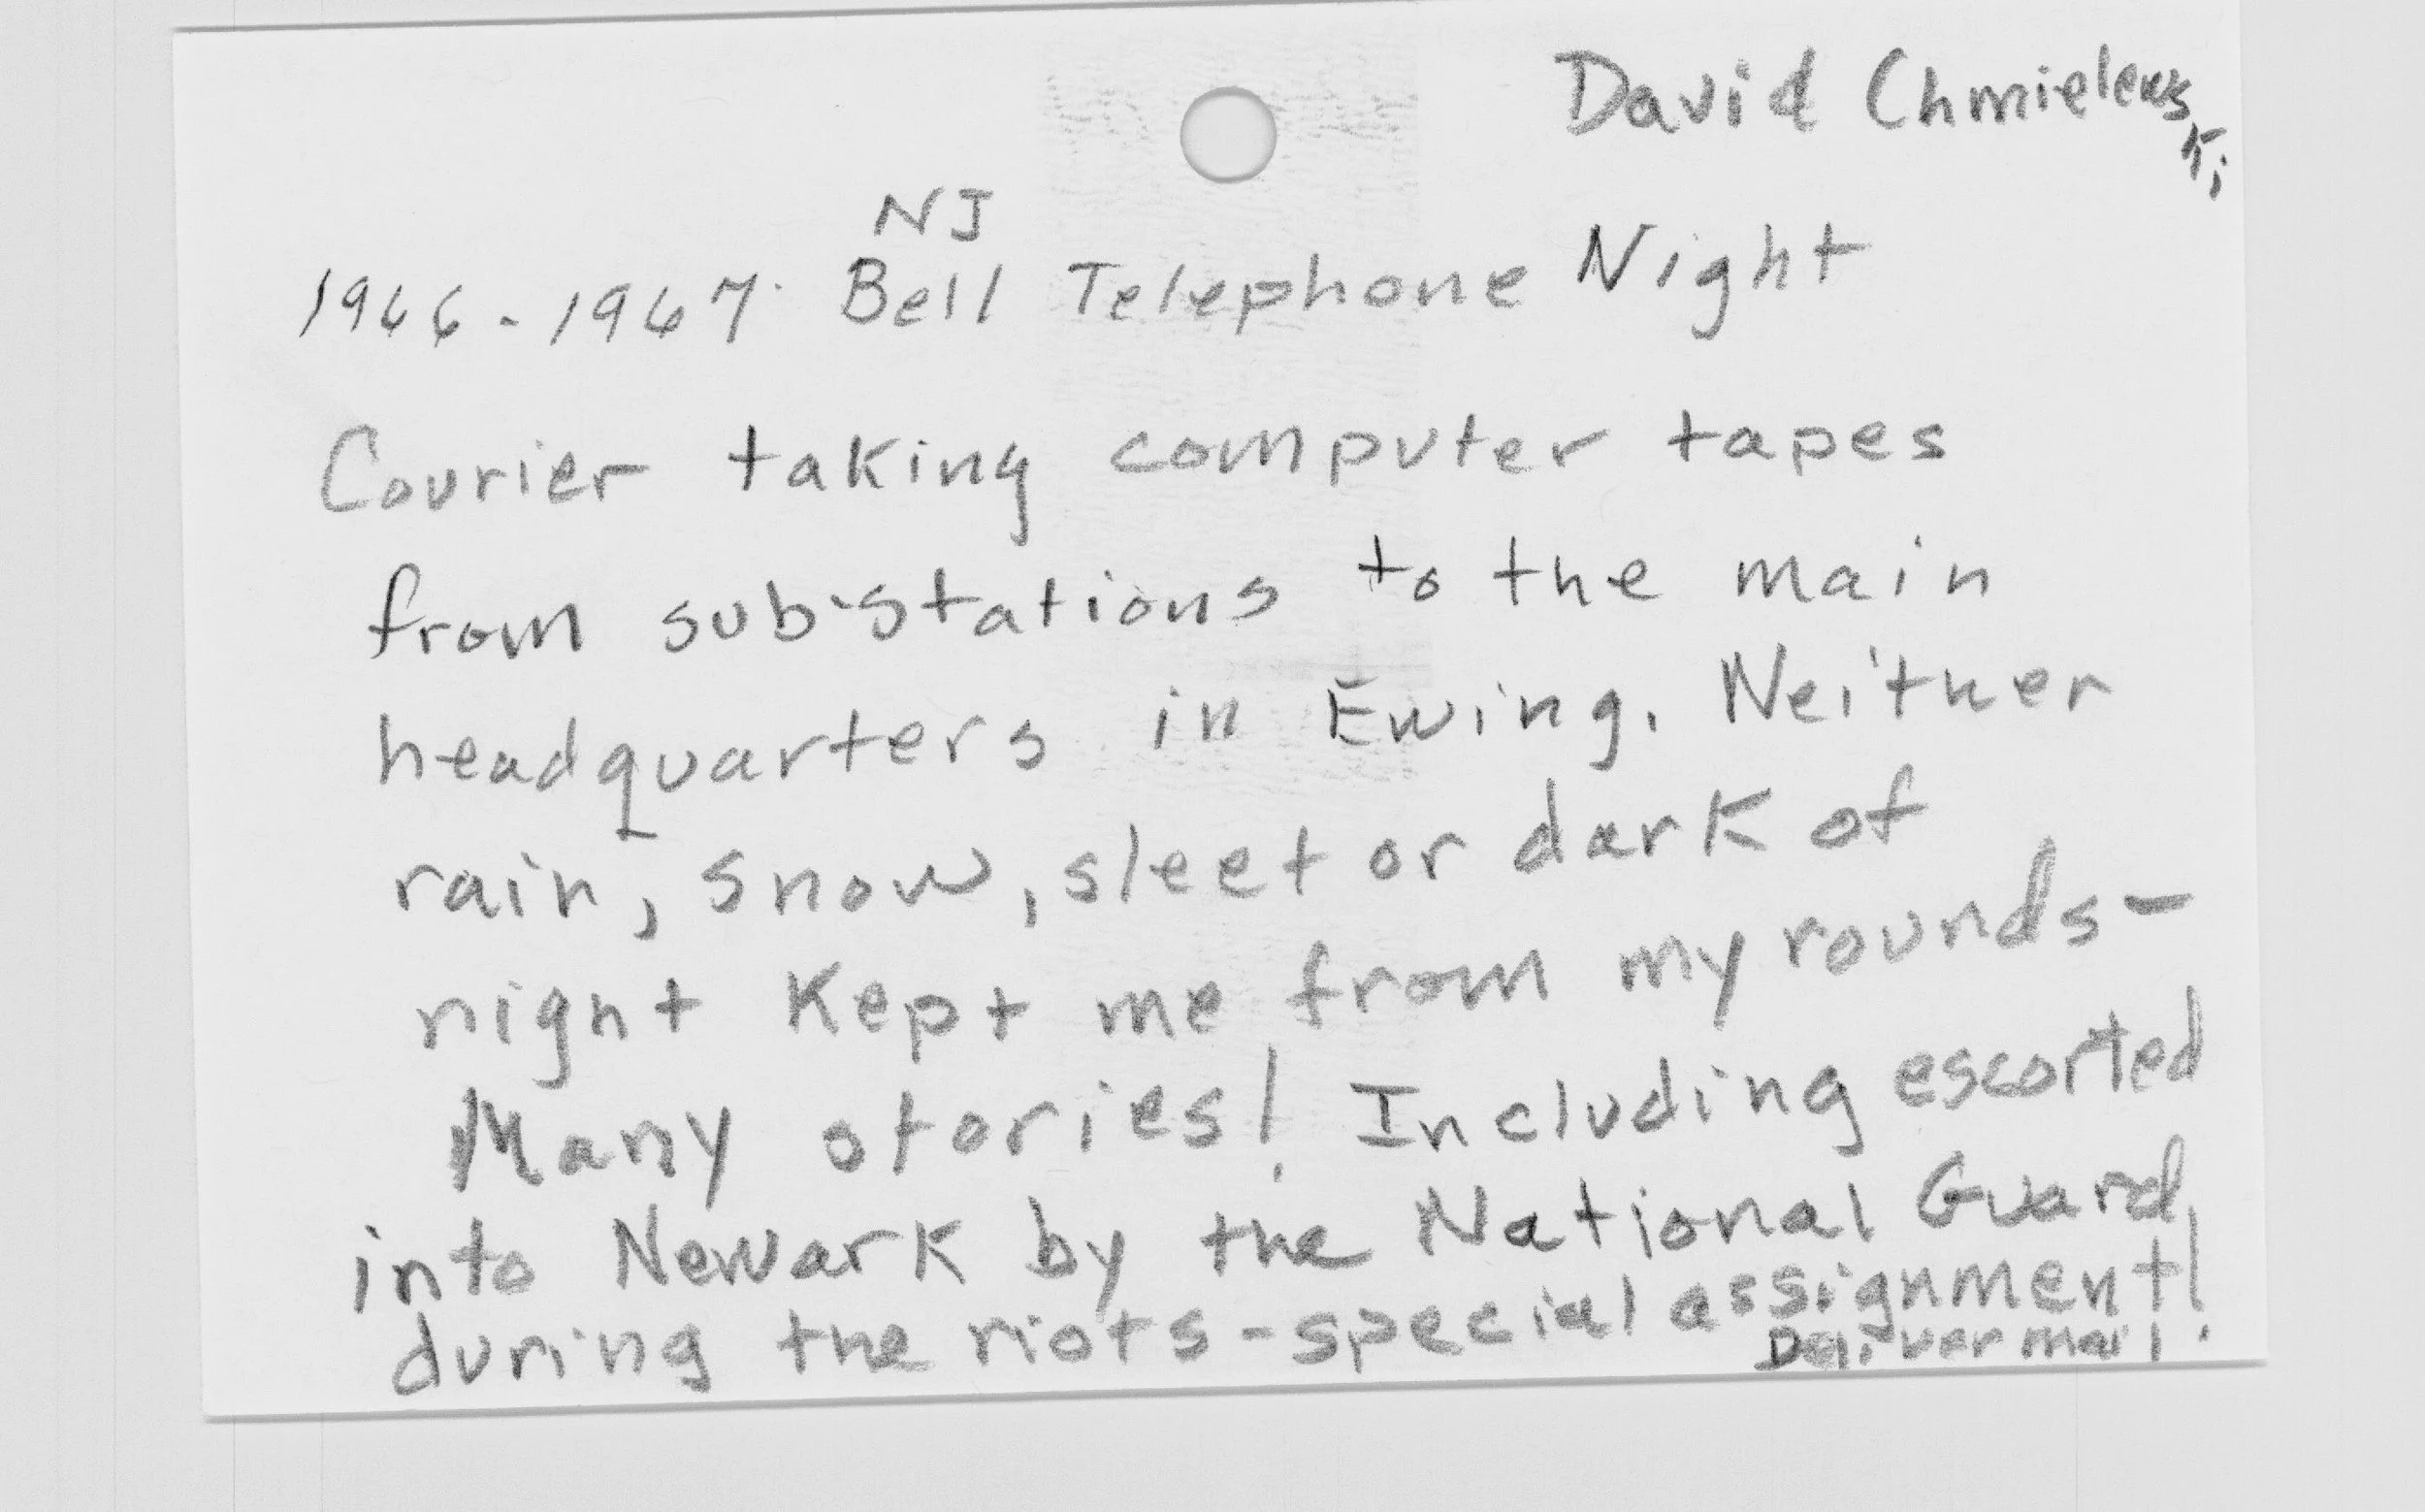 David Chmielewski
NJ
1966-1967. Bell Telephone Night
Courier taking computer tapes
from sub-stations to the main
headquarters in Ewing. Neither
rain, snow, sleet or dark of
night kept me from my rounds-
Many stories! Including escorted
into Newark by the National Guard
during the riots-special assignment!
Deliver mail.